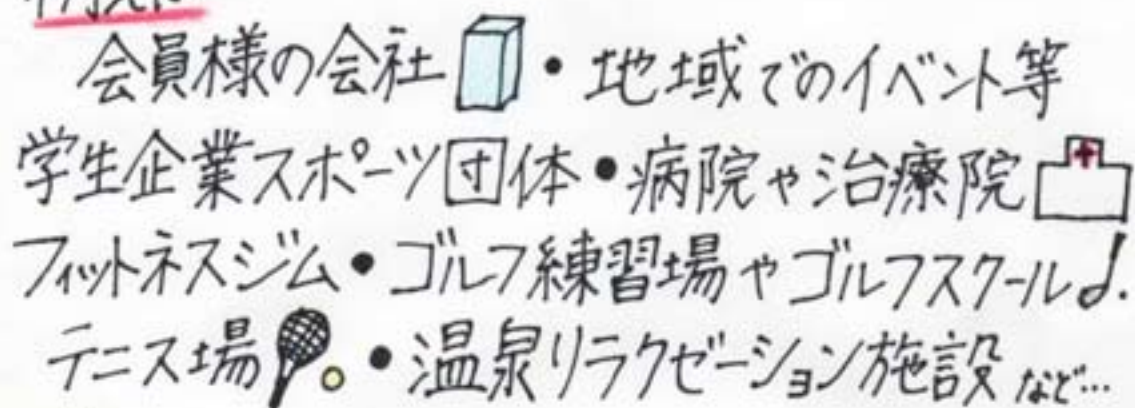 会員様の会社・地域でのイベント等
学生企業スポーツ団体・病院や治療院
フィットネスジム・ゴルフ練習場やゴルフスクール
テニス場・温泉リラクゼーション施設など…